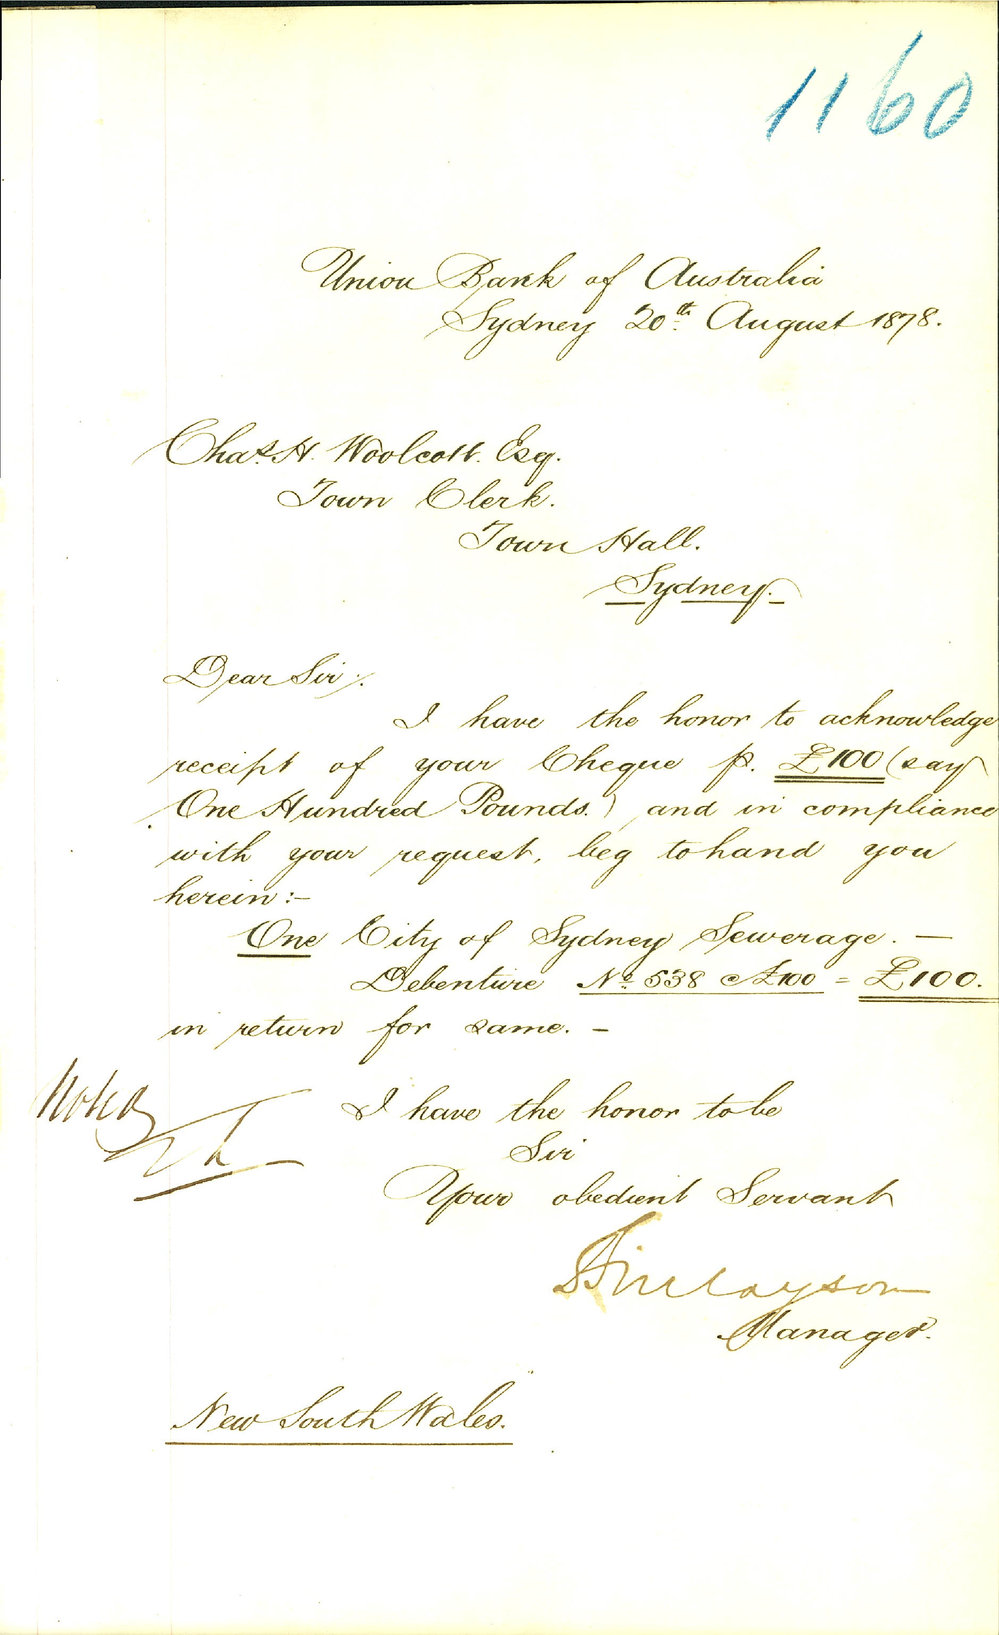 1160
Union Bank of Australia
Sydney 20th August 1878.
Chas. H. Woolcott. Esq.
Town Clerk.
Town Hall.
Sydney.
Dear Sir,
I have the honor to acknowledge
receipt of your Cheque p. £100 (say
One Hundred Pounds.) and in compliance
with your request, beg to hand you
herein:-
One City of Sydney Sewerage. —
Debenture No. 538 £100 = £100.
in return for same. —
Noted
I have the honor to be
Sir
Your obedient Servant
Finlayson
Manager.
New South Wales.